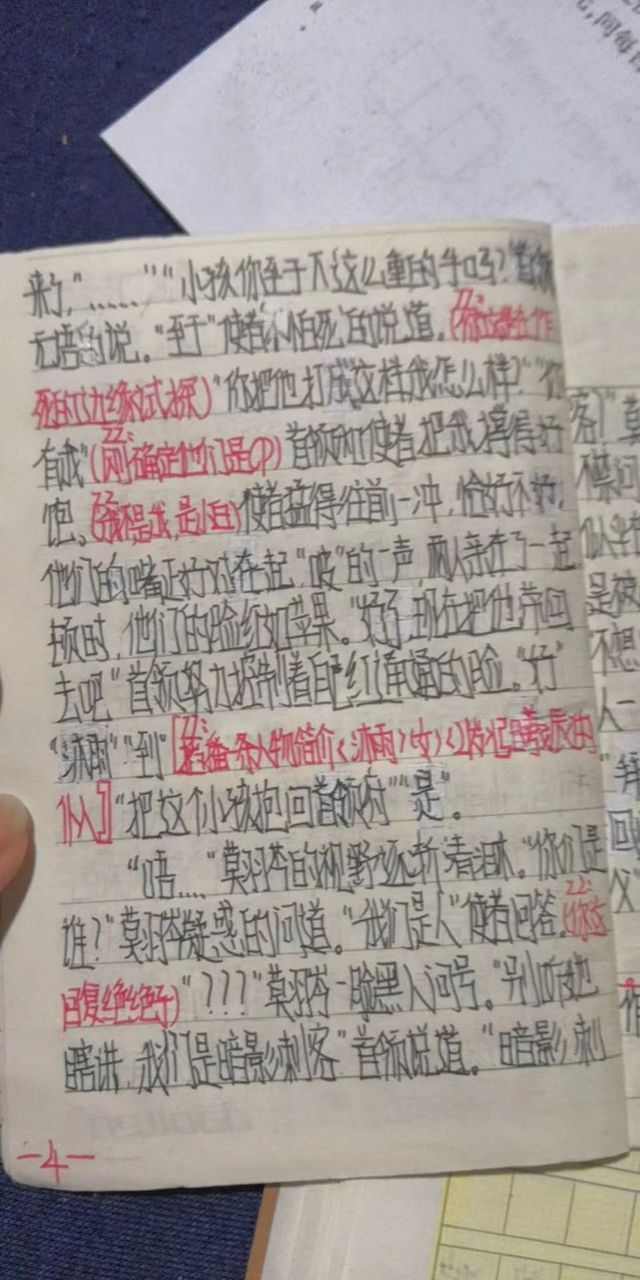 来了,“……”“小孩你至于下这么重的手吗?”首领
无语的说。“至于”使者不怕死的说道。(ZZ:你这是在作
死的边缘试探)“你把他打成这样我怎么样?”“你
有我”(ZZ:刚确定他们是CP)首领和使者把我撑得好
饱。(ZZ:我不是我,是小白)使者猛得往前一冲,恰好不好,
他们的嘴正好对在起“啵”的一声,两人亲在了一起
顿时,他们的脸红如苹果。“好了,现在把他带回
去吧”首领努力控制着自己红通通的脸。“好”
“沐雨”“到”[ZZ:人物简介<沐雨>(女)<>的
个人]“把这个小孩抱回首领府”“是”。
“唔....”莫羽岑的视野逐渐清晰。“你们是
谁?”莫羽岑疑惑的问道。“我们是人”使者回答。(ZZ:你这
回复绝绝子)“???”莫羽岑一脸黑人问号。“别听他
瞎讲,我们是暗影刺客”首领说道。“暗影刺
-4-
客!”莫
是被
不想
人一